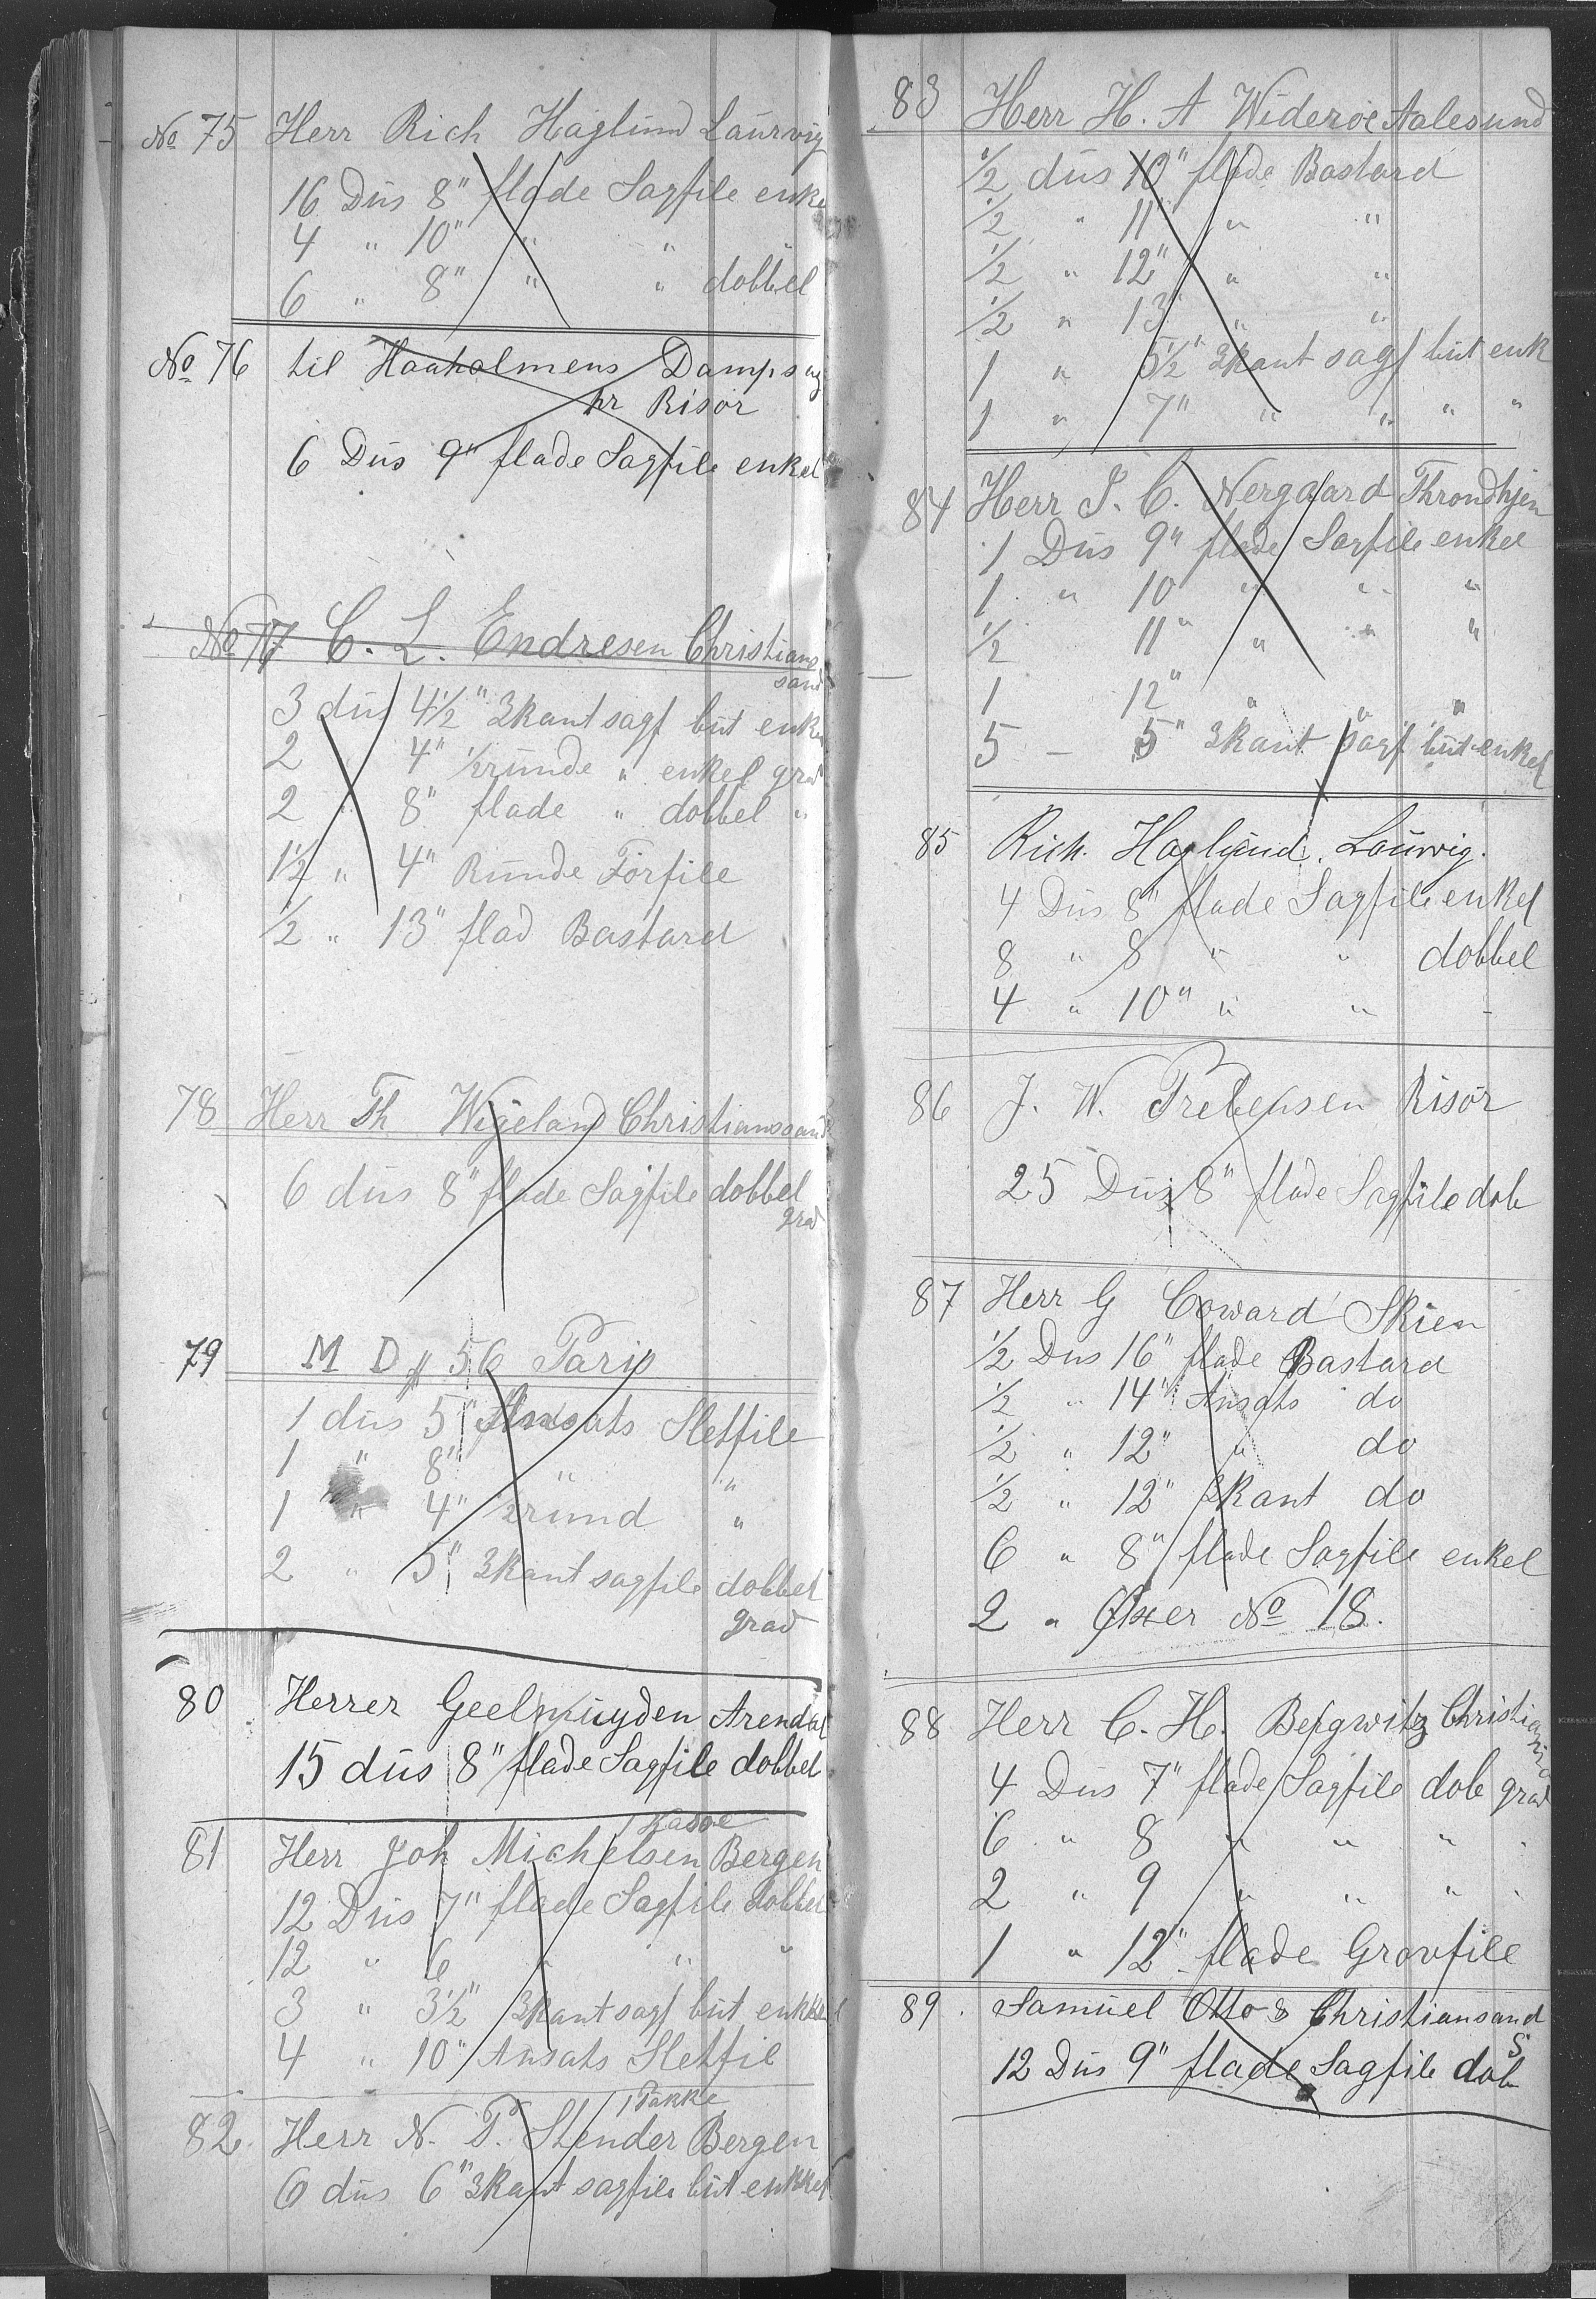 No 75 Herr Rich Haglund Laurvig
16 Dus 8" flade Sagfile enke
4 " 10" " "
6 " 8" " " dobbel
No 76 til Haaholmens Dampsag
pr Risör
6 Dus 9" flade Sagfile enkel
No 77 C. L. Endresen Christian
sand
3 dus 4 1/2" 3kant sagf but enkel
2 4" 1/2 runde " enkel grad
2 " 8" flade " dobbel "
1 1/2 " 4" Runde Forfile
1/2 " 13" flad Bastard
78 Herr Th Wigeland Christianssand
6 dus 8" flade Sagfile dobbel
grad
79 M D # 56 Paris
1 dus 5" Ansats Sletfile
1 " 8" " "
1 " 4" 1/2 rund "
2 " 5" 3kant sagfile dobbel
grad
80 Herrer Geelmuyden Arendal
15 dus 8" flade Sagfile dobbel
1 Kasse
81 Herr Joh Michelsen Bergen
12 Dus 7" flade Sagfile dobbel
12 " 6 " " "
3 " 3 1/2" 3kant sagf but enkel
4 " 10" Ansats Sletfil
1 Pakke
82. Herr N. P. Stender Bergen
6 dus 6" 3kant sagfile but enkel
83 Herr H. A Wideroe Aalesund
1/2 dus 10" flade Bastard
1/2 " 11" " "
1/2 " 12" " "
1/2 " 13" " "
1 " 5 1/2" 3kant sagf but enk
1 " 7" " " " "
84 Herr J. C. Nergaard Throndhjem
1 Dus 9" flade Sagfile enkel
1 " 10 " " "
1/2 11" " " "
1 12" " " "
5 - 5" 3kant sagf but enkel
85 Rich. Haglund. Laurvig.
4 Dus 8" flade Sagfile enkel
8 " 8 " " dobbel
4 " 10" " " -
86 J. W. Prebensen Risör
25 Dus 8" flade Sagfile dob
87 Herr G Coward Skien
1/2 Dus 16" flade Bastard
1/2 " 14" Ansats do
1/2 " 12" " do
1/2 " 12" 3kant do
6 " 8" flade Sagfile enkel
2 " Öxer No 18.
88 Herr C. H. Bergwitz Christiania
4 Dus 7" flade Sagfile dob grad
6 " 8 " " " "
2 " 9 " " " "
1 " 12" flade Grovfile
89. Samuel Otto & Christiansand
S
12 Dus 9" flade Sagfile dob